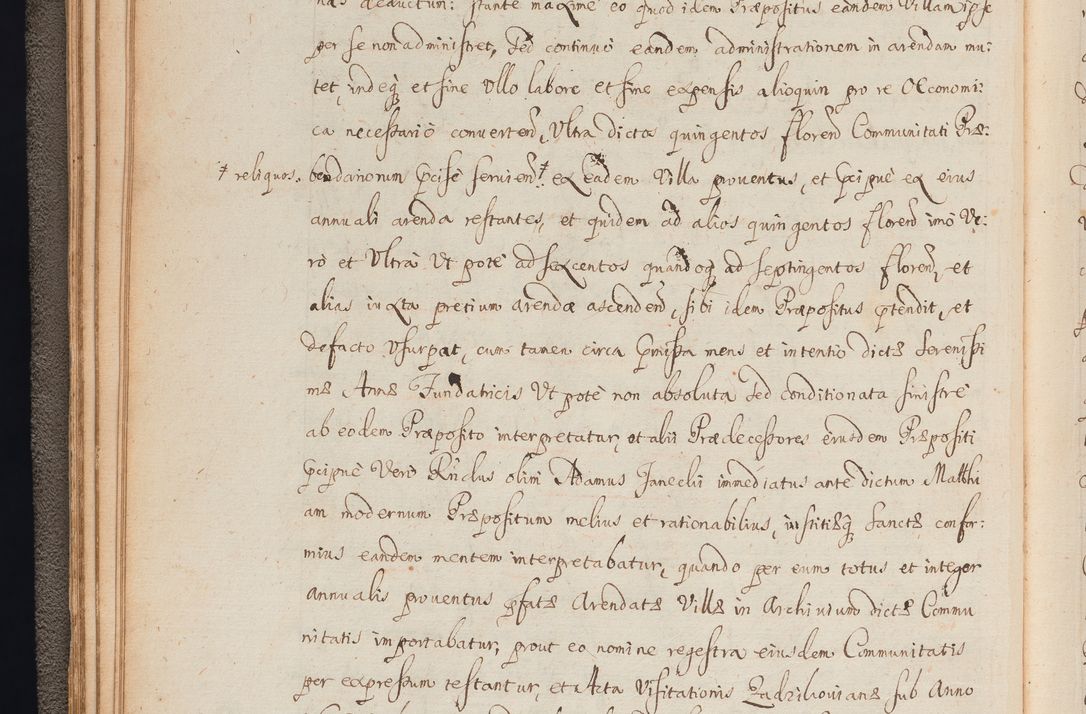 nas deductum: stante maxime eo quod idem Præpositus eandem Villam ipse
per se non administret, sed continuò eandem administrationem in arendam mu:
tet, indeq; et sine Vllo labore et sine expensis alioquin pro re Œconomi:
ca necessariò convertend, Vltra dictos quingentos floren Communitati Præ:
‡ reliquos. bendariorum pcisè servien‡: ex eadem Villa proventus, et pcipuè ex eius
annuali arenda restantes, et quidem ad alios quingentos floren imò Ve:
rò et Vltrà Vt potè ad sexcentos quandoq; ad septingentos floren, et
alias iuxta pretium arendæ ascenden, sibi idem Præpositus ptendit, et
de facto Vsurpat, cum tamen circa pmissa mens et intentio dictę Serenissi
mę Annę Fundatricis Vt potè non absoluta sed conditionata sinistrè
ab eodem Præposito interpretatur, et alii Prædecessores eiusdem Prępositi
pcipuè Verò Rndus olim Adamus Janecii immediatus ante dictum Matthi
am modernum Prępositum melius et rationabilius, iustitięq; sanctę confor:
mius eandem mentem interpretabatur, quando per eum totus et integer
annualis proventus pfatę Arendatę Villę in Archivum dictę Commu
nitatis importabatur, prout eo nomine regestra eiusdem Communitatis
per expressum testantur, et Acta Visitationis Zadzikovianę sub Anno